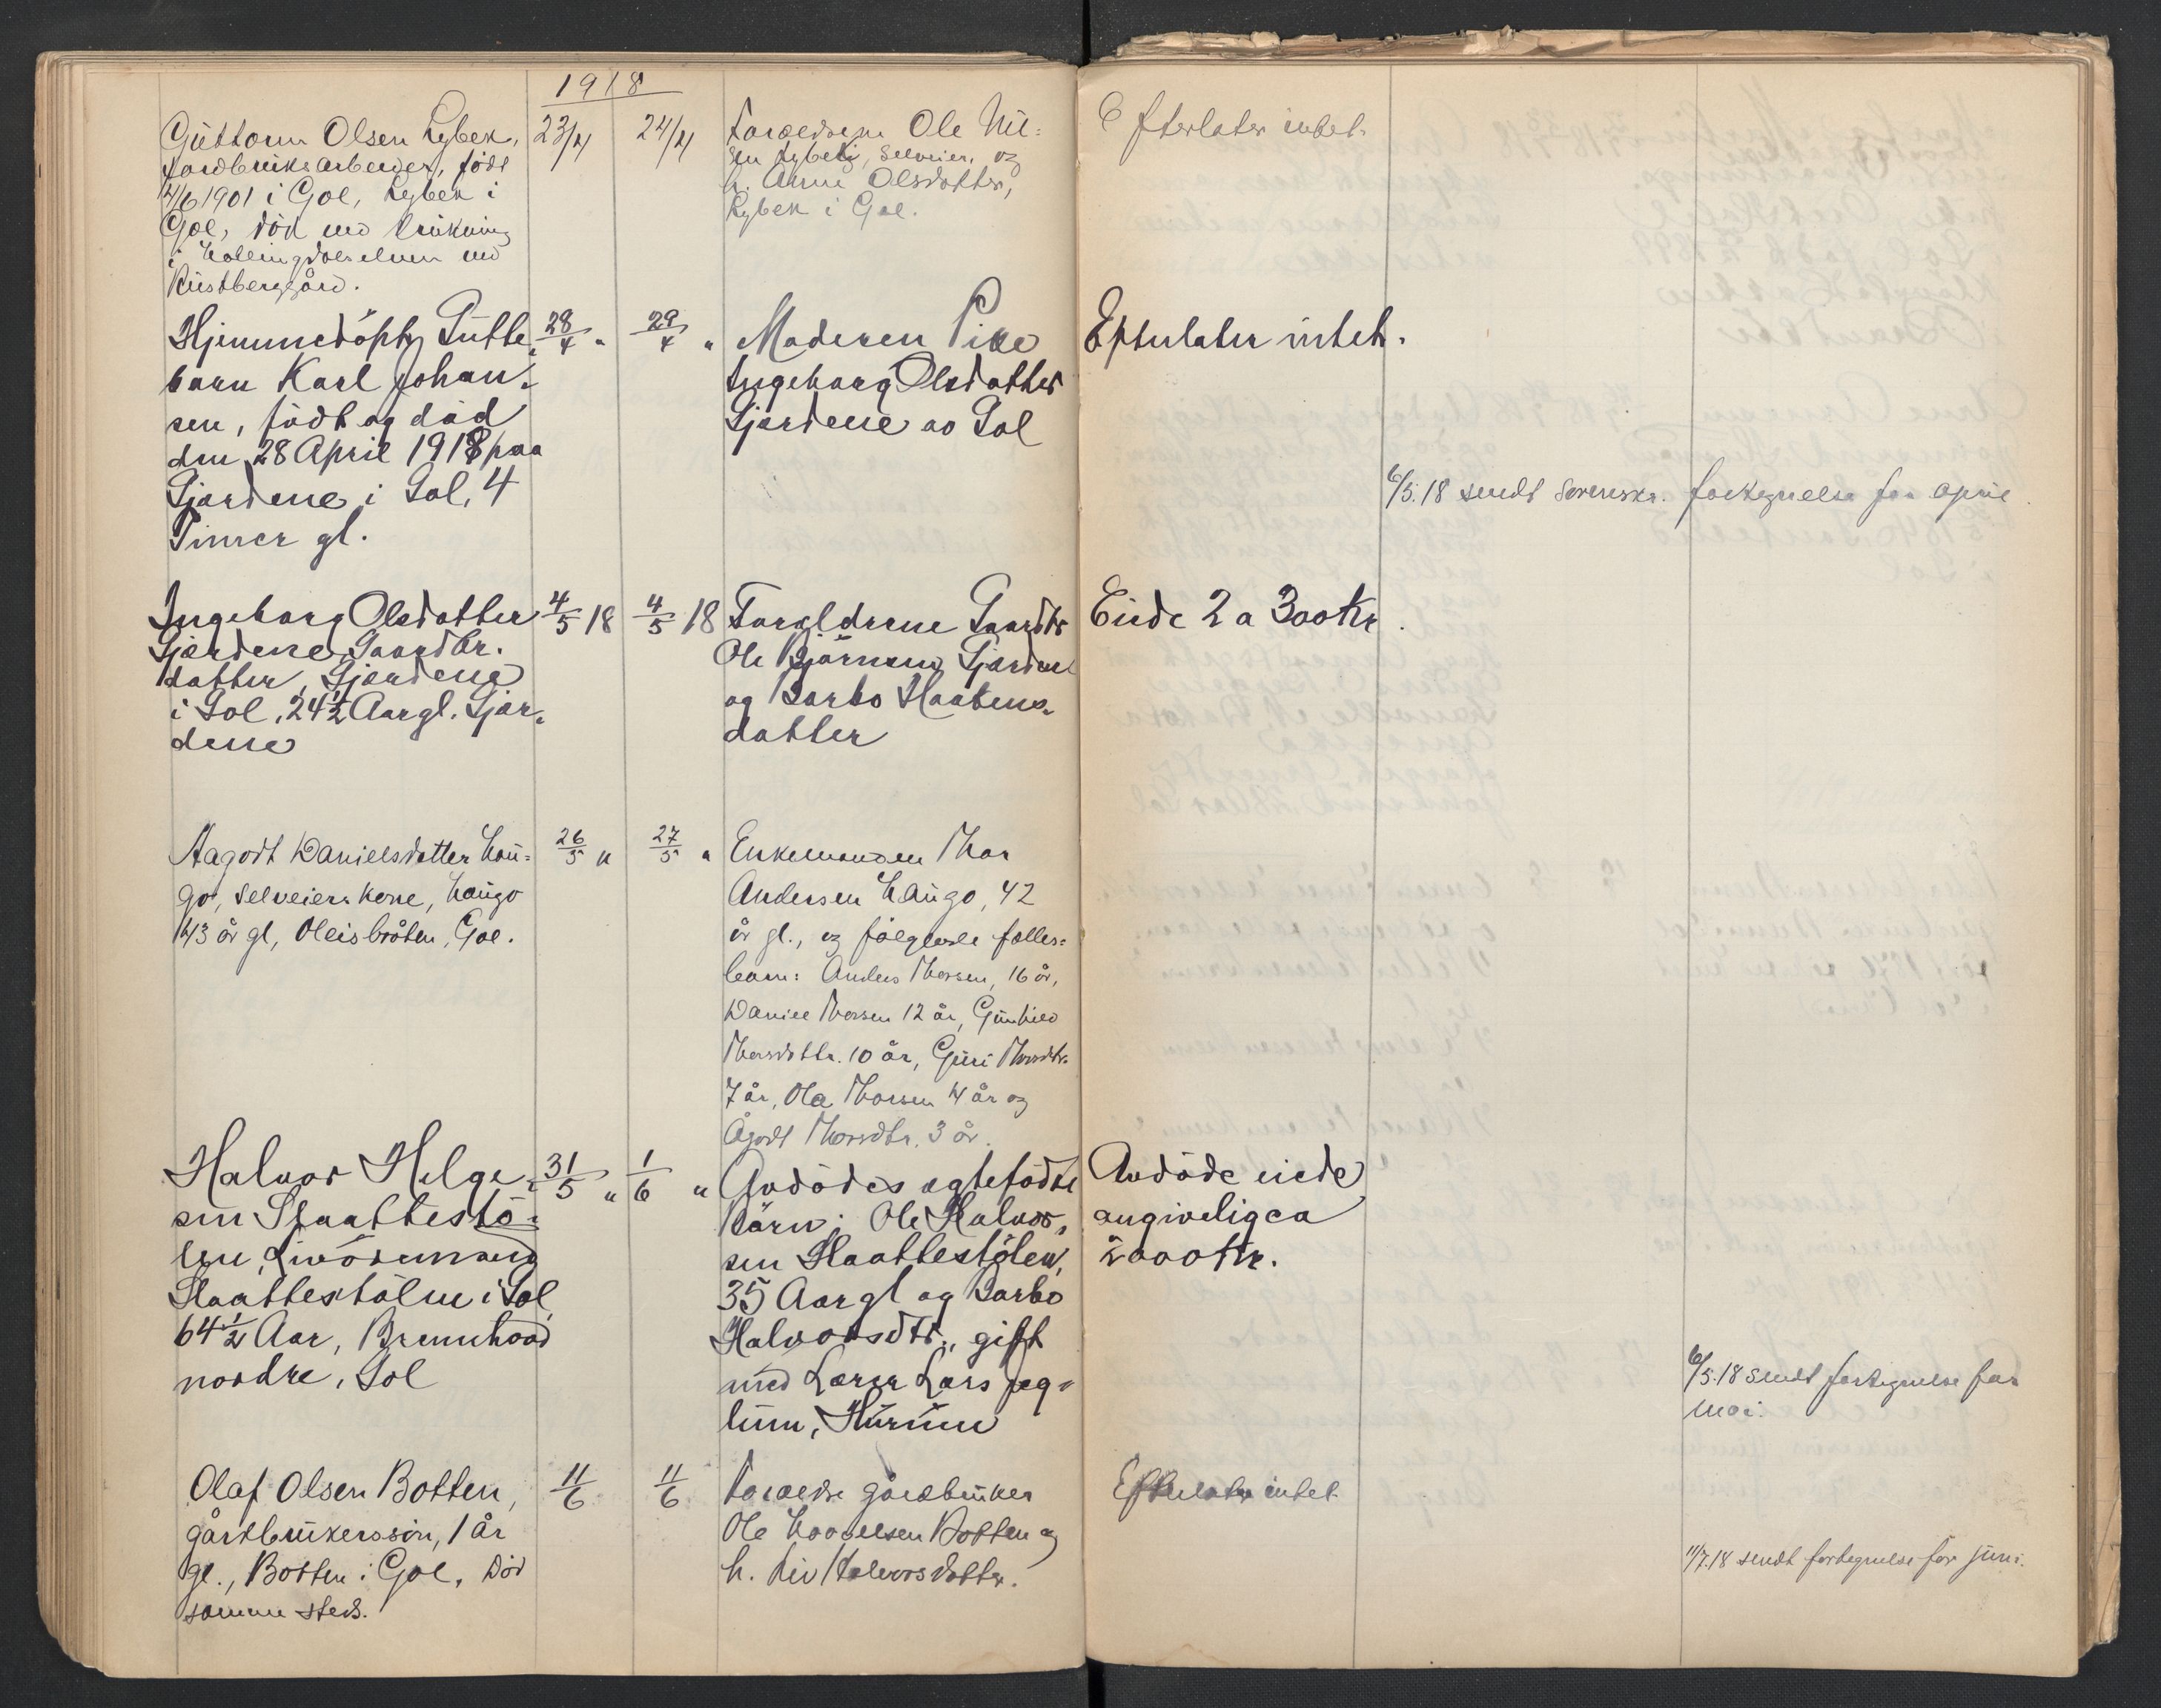 1918
Guttorm Olsen Rybek,
jordbruksarbeider, født
4/6 1901 i Gol, Rybek i
Gol, død ved drukning
i Hallingdalselven ved
Rustberggård.
23/4
24/4
Forældrene Ole Nil=
sen Rybek, selveier, og
h. Anne Olsdotter,
Rybek i Gol.
Efterlater intet.
Hjemmedöpt Gutte=
barn Karl Johan=
sen, födt og död
den 28 April 1918 paa
Gjerdene i Gol, 4
Timer gl.
28/4 "
29/4 "
Moderen Pike
Ingeborg Olsdatter
Gjerdene av Gol
Efterlater intet.
6/5.18 sendt Sorenskr. fortegnelse for april.
Ingeborg Olsdatter
Gjerdene, Gaardbr.
datter, Gjerdene
i Gol, 24 1/2 Aar gl. Gjer=
dene
4/5 18
4/5 18
Forældrene Gaardbr
Ole Björnsen Gjerdene
og Barbo Haakens=
datter
Eiede 2 a 300 Kr.
Aagodt Danielsdotter Hau=
go, selveiers kone, Haugo
43 år gl, Oleisbråten, Gol.
26/5 "
27/5 "
Enkemanden Thor
Andersen Haugo, 42
år gl., og følgende felles=
barn: Anders Thorsen, 16 år,
Daniel Thorsen 12 år, Gunhild
Thorsdottr. 10 år, Guri Thorsdtr.
7 år, Ola Thorsen 4 år og
Ågodt Thorsdtr. 3 år.
Halvor Helge=
sen Slaattestö=
len, Livöremand
Slaattestölen i Gol
64 1/2 Aar, Brennhovd
nordre, Gol
31/5 "
1/6 "
Avdödes egtefödte
Börn: Ole Halvor=
sen Slaattestölen,
35 Aar gl og Barbo
Halvorsdtr., gift
med Lærer Lars Jeg=
lum, Hurum
Avdöde eiede
angivelig ca
2000 Kr.
6/5.18 sendt fortegnelse for
mai.
Olaf Olsen Botten,
gårdbrukerssøn, 1 år
gl., Botten i Gol, død
samme steds.
11/6
11/6
Forældre gårdbruker
Ole Botten og
h. Liv Halvorsdotter.
Efterlater intet
11/7.18 sendt fortegnelse for juni.